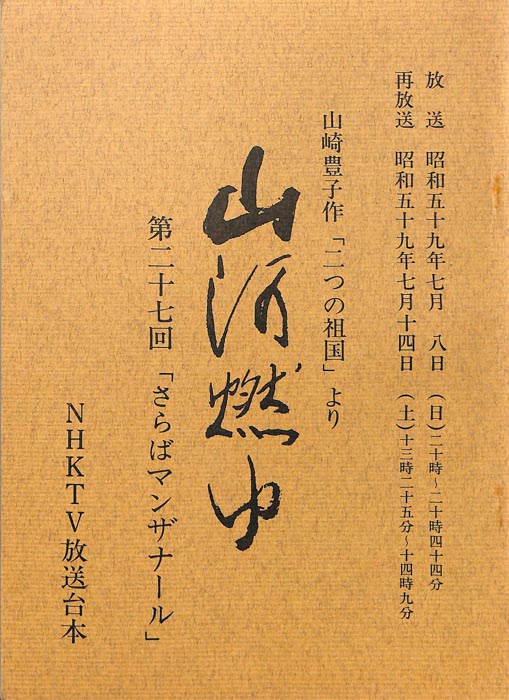 放　送　昭和五十九年七月　八日　(日)二十時～二十時四十四分
再放送　昭和五十九年七月十四日　(土)十三時二十五分～十四時九分
山崎豊子作「二つの祖国」より
山河燃ゆ
第二十七回「さらばマンザナール」
NHKTV放送台本